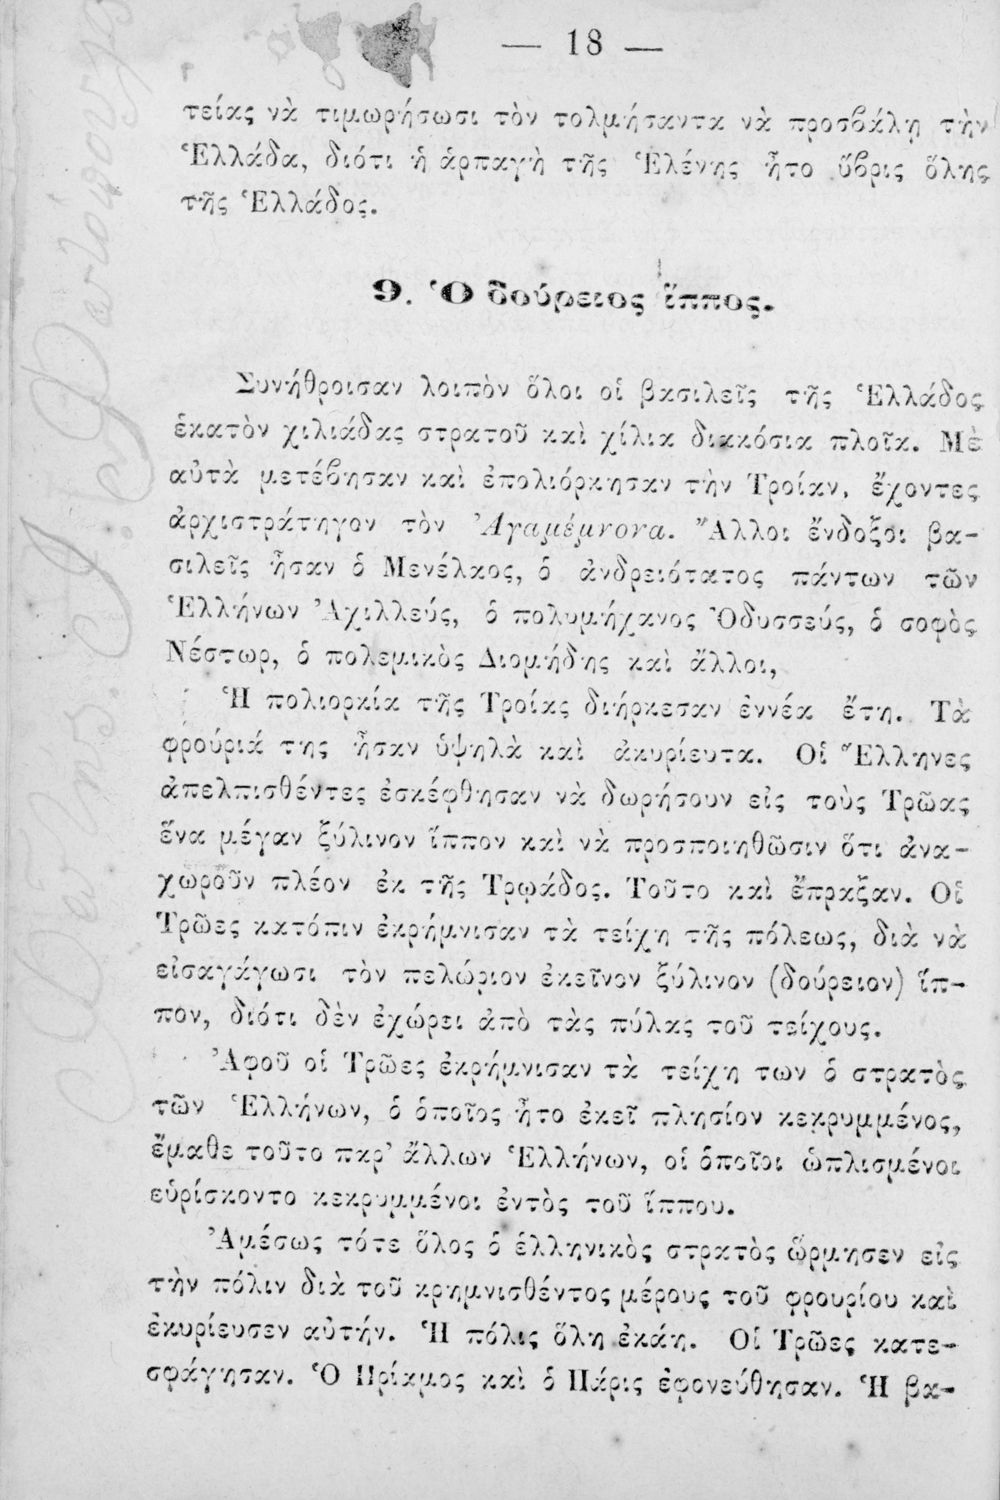 — 18 —
τείας νὰ τιμωρήσωσι τὸν τολμήσαντα νὰ προσβάλῃ τὴν
Ἑλλάδα, διότι ἡ ἁρπαγὴ τῆς Ἑλένης ἦτο ὕβρις ὅλης
τῆς Ἑλλάδος.
9. Ὁ δούρειος ἵππος.
Συνήθροισαν λοιπὸν ὅλοι οἱ βασιλεῖς τῆς Ἑλλάδος
ἑκατὸν χιλιάδας στρατοῦ καὶ χίλια διακόσια πλοῖα. Μὲ
αὐτὰ μετέβησαν καὶ ἐπολιόρκησαν τὴν Τροίαν, ἔχοντες
ἀρχιστράτηγον τὸν Ἀγαμέμνονα. Ἄλλοι ἔνδοξοι βα-
σιλεῖς ἦσαν ὁ Μενέλαος, ὁ ἀνδρειότατος πάντων τῶν
Ἑλλήνων Ἀχιλλεύς, ὁ πολυμήχανος Ὀδυσσεύς, ὁ σοφὸς
Νέστωρ, ὁ πολεμικὸς Διομήδης καὶ ἄλλοι,
Ἡ πολιορκία τῆς Τροίας διήρκεσαν ἐννέα ἔτη. Τὰ
φρούριά της ἦσαν ὑψηλὰ καὶ ἀκυρίευτα. Οἱ Ἕλληνες
ἀπελπισθέντες ἐσκέφθησαν νὰ δωρήσουν εἰς τοὺς Τρῶας
ἕνα μέγαν ξύλινον ἵππον καὶ νὰ προσποιηθῶσιν ὅτι ἀνα-
χωροῦν πλέον ἐκ τῆς Τρῳάδος. Τοῦτο καὶ ἔπραξαν. Οἱ
Τρῶες κατόπιν ἐκρήμνισαν τὰ τείχη τῆς πόλεως, διὰ νὰ
εἰσαγάγωσι τὸν πελώριον ἐκεῖνον ξύλινον (δούρειον) ἵπ-
πον, διότι δὲν ἐχώρει ἀπὸ τὰς πύλας τοῦ τείχους.
Ἀφοῦ οἱ Τρῶες ἐκρήμνισαν τὰ τείχη των ὁ στρατὸς
τῶν Ἑλλήνων, ὁ ὁποῖος ἦτο ἐκεῖ πλησίον κεκρυμμένος,
ἔμαθε τοῦτο παρ' ἄλλων Ἑλλήνων, οἱ ὁποῖοι ὡπλισμένοι
εὑρίσκοντο κεκρυμμένοι ἐντὸς τοῦ ἵππου.
Ἀμέσως τότε ὅλος ὁ ἑλληνικὸς στρατὸς ὥρμησεν εἰς
τὴν πόλιν διὰ τοῦ κρημνισθέντος μέρους τοῦ φρουρίου καὶ
ἐκυρίευσεν αὐτήν. Ἡ πόλις ὅλη ἐκάη. Οἱ Τρῶες κατε-
σφάγησαν. Ὁ Πρίαμος καὶ ὁ Πάρις ἐφονεύθησαν. Ἡ βα-